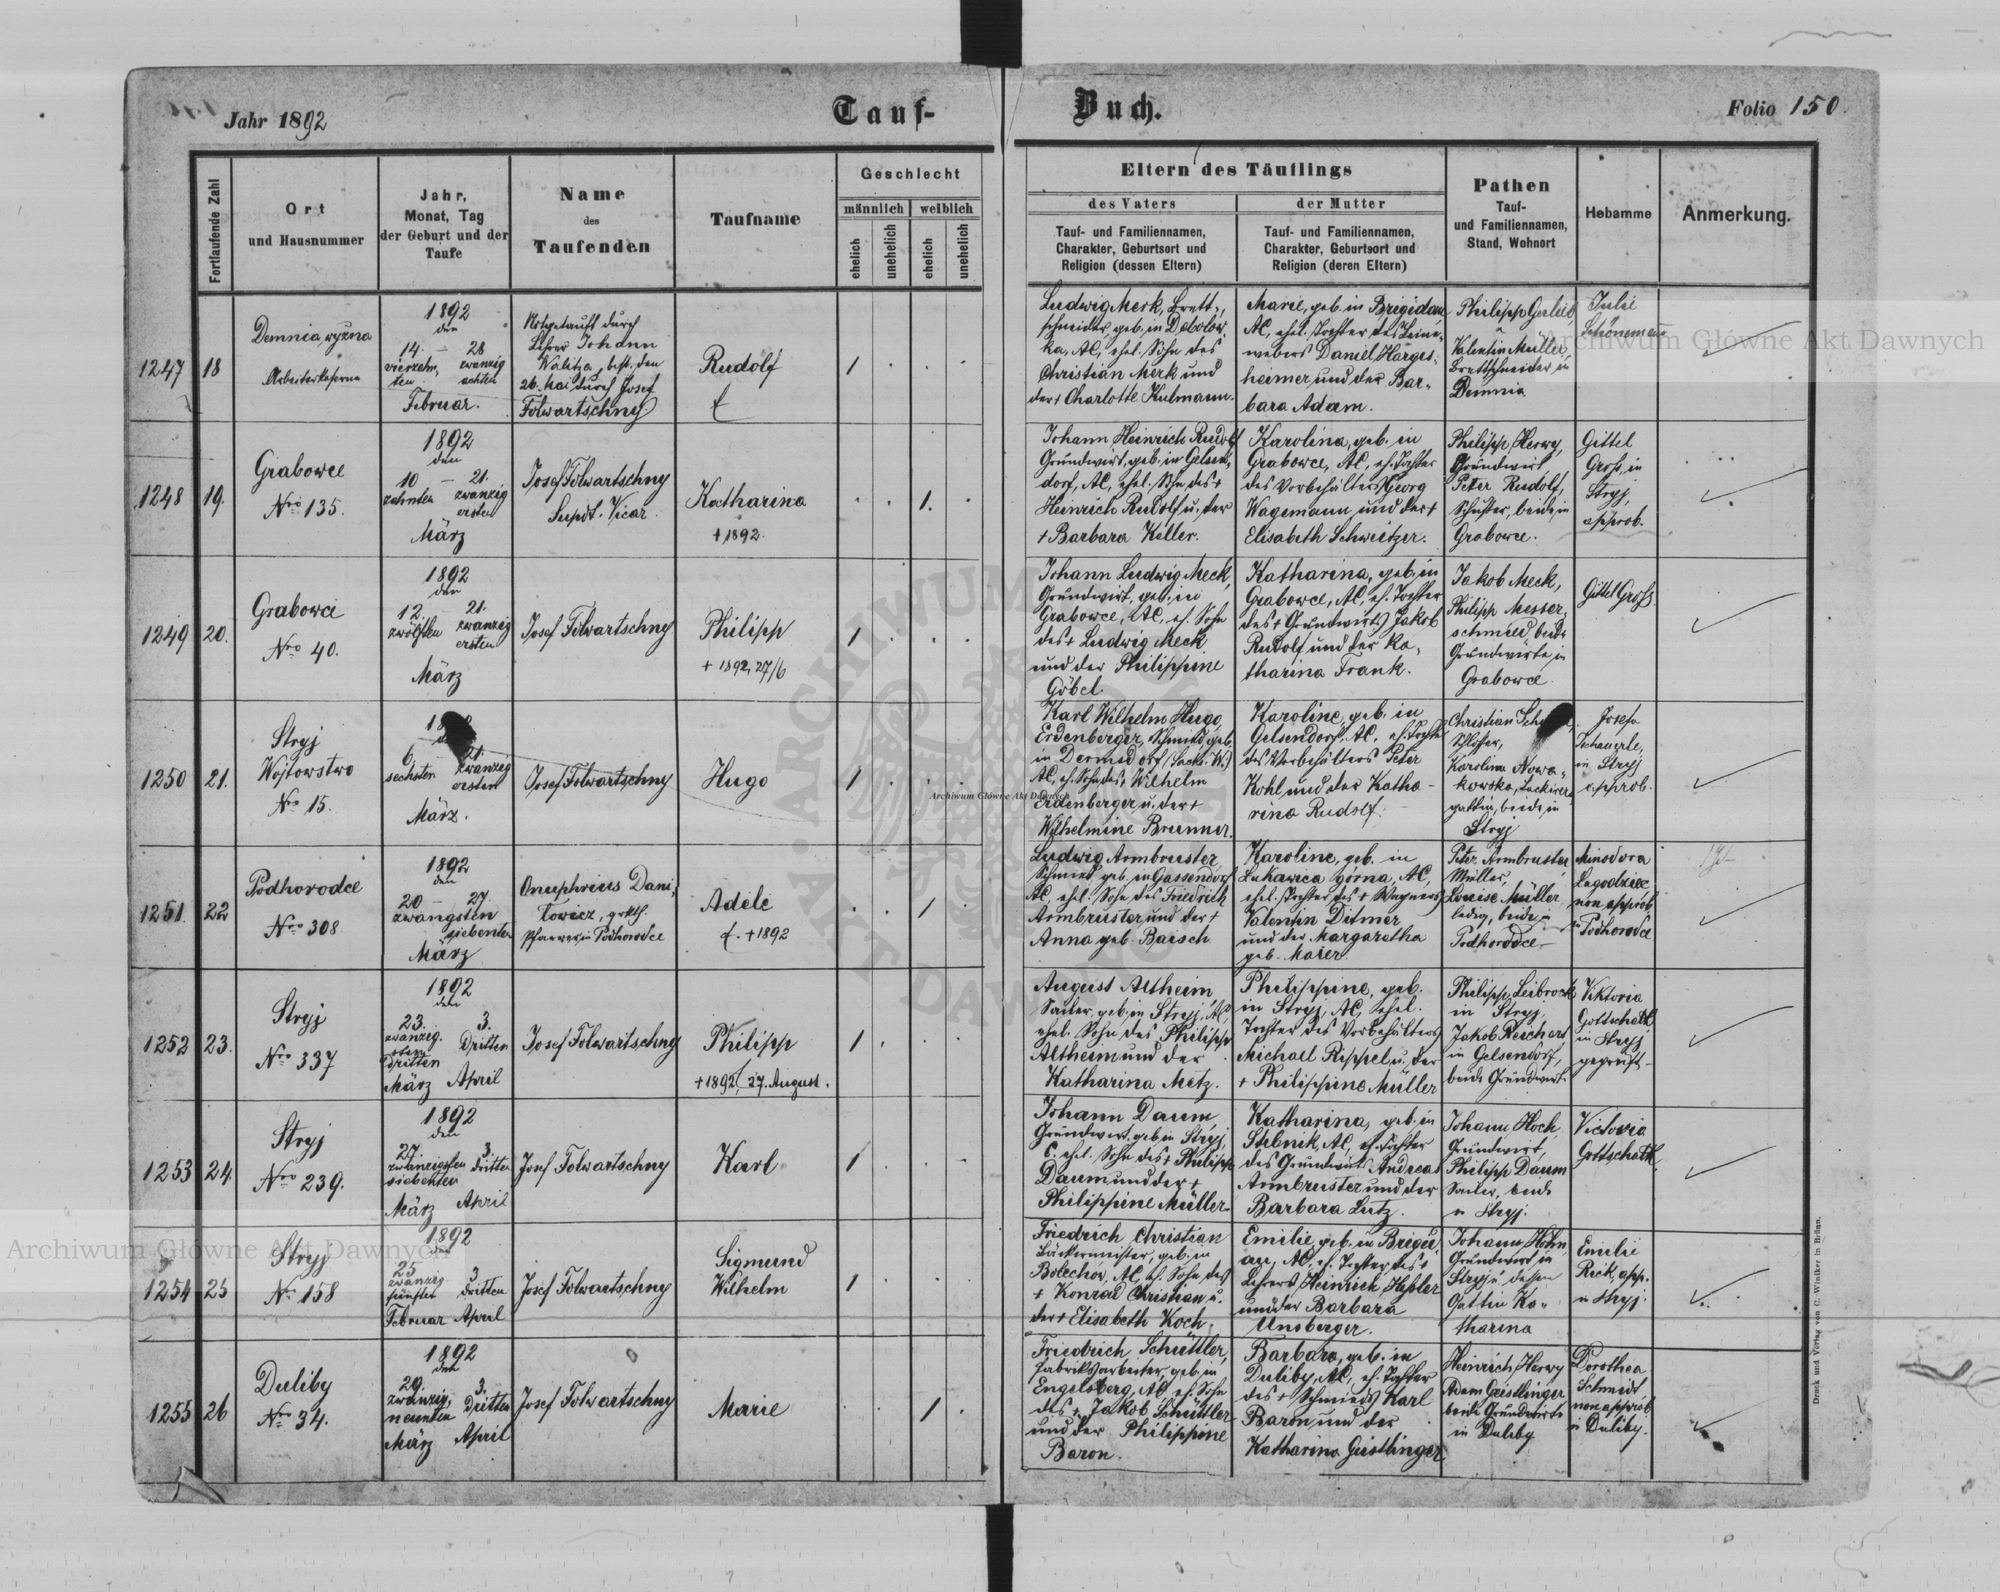 Jahr 1892
Tauf-
Buch.
Folio 150.
Fortlaufende Zahl
Ort
und Hausnummer
Jahr,
Monat, Tag
der Geburt und der
Taufe
Name
des
Taufenden
Taufname
Geschlecht
männlich
weiblich
ehelich
unehelich
ehelich
unehelich
Eltern des Täuflings
des Vaters
Tauf- und Familiennamen,
Charakter, Geburtsort und
Religion (dessen Eltern)
der Mutter
Tauf- und Familiennamen,
Charakter, Geburtsort und
Religion (deren Eltern)
Pathen
Tauf-
und Familiennamen,
Stand, Wohnort
Hebamme
Anmerkung.
1247
18
Demnia wyżna
1892
den
14. — 28
vierzehn, zwanzig
ten achten
Februar.
Notgetauft durch
Lehrer Johann
Walitza, best. den
26. Mai durch Josef
Folwartschny
Rudolf
1
Ludwig Merk, Brett-,
schneider, geb. in Debolow,
ka, AC, ehel. Sohn des
Christian Merk und
der + Charlotte Kulmann.
Marie, geb. in Brigidau
AC, ehel. Tochter des Leine-
webers Daniel Harges,
heimer und der Bar-
bara Adam.
Philipp Gerlieb,
Valentin Müller,
Brettschneider in
Demnia
Julie
Schönemann
1248
19.
Grabowce
Nro 135.
1892
den
10 — 21.
zehnten zwanzig
ersten
März
Josef Folwartschny
Supdt. Vicar.
Katharina
+ 1892.
1.
Johann Heinrich Rudolf
Grundwirt, geb. in Gelsen,
dorf, AC, ehel. Sohn des +
Heinrich Rudolf u. der
+ Barbara Keller.
Karolina, geb. in
Grabowce, AC, eh. Tochter
des Vorbehälters Georg
Wagemann und der +
Elisabeth Schweitzer.
Philipp Herwy,
Grundwirt,
Peter Rudolf,
Schuster, beide in
Grabowce.
Gittel
Gross, in
Stryj,
approb.
1249
20.
Grabowci
Nro 40.
1892
den
12. — 21.
zwölften zwanzig
ersten
März
Josef Folwartschny
Philipp
+ 1892, 27/6
1
Johann Ludwig Meck,
Grundwirt, geb. in
Grabowce, AC, eh. Sohn
des + Ludwig Meck
und der Philippine
Göbel.
Katharina, geb. in
Grabowce, AC, eh. Tochter
des + Grundwirts Jakob
Rudolf und der Ka,
tharina Frank.
Jakob Meck,
Philipp Messer,
schmied, beide
Grundwirte in
Grabowce.
Gittel Gross.
1250
21.
Stryj
Wojtowstwo
Nro 15.
6 — 21.
sechsten zwanzig
ersten
März.
Josef Folwartschny
Hugo
1
Karl Wilhelm Hugo
Erdenberger, Schmied, geb.
in Dermsdorf (Sachs. W.)
AC, eh. Sohn des + Wilhelm
Erdenberger u. der +
Wilhelmine Brunner.
Karoline, geb. in
Gelsendorf, AC, eh. Tochter
des Vorbehälters Peter
Kohl und der Katha-
rina Rudolf.
Christian
Schlosser,
Karolina Nowa-
kowska, Lackirers
gattin, beide in
Stryj
Josefa
in Stryj
approb.
1251.
22
Podhorodce
Nro 308
1892
den
20 — 27.
zwanzigsten
siebenten
März
Onuphrius Dani,
lowicz, grkth.
Pfarrer in Podhorodce
Adele
+ 1892
1
Ludwig Armbruster
Schmied, geb. in Gassendorf
AC, ehel. Sohn des Friedrich
Armbruster und der +
Anna geb. Baisch
Karoline, geb. in
Lukawica górna, AC,
ehel. Tochter des + Wagners
Valentin Ditmer
und der Margaretha
geb. Maier.
Peter Armbruster,
Müller,
Louise Müller
ledig, beide in
Podhorodce
Minodora
Legodziec,
non approb.
in Podhorodce
1252
23.
Stryj
Nro 337
1892
den
23. 3.
zwanzig. Dritten
sten
dritten
März April
Josef Folwartschny
Philipp
+ 1892, 27. August.
1
August Altheim
Sattler, geb. in Stryj, AC,
ehel. Sohn des Philipp
Altheim und der
Katharina Metz.
Philippine, geb.
in Stryj, AC, ehel.
Tochter des Vorbehälters
Michael Rippel u. der
+ Philippine Müller
Philipp Leibrock
in Stryj,
Jakob Reichart
in Gelsendorf,
beide Grundwirt
Viktoria
Gottschalk
in Stryj
geprüft
1253
24.
Stryj
Nro 239.
1892
den
27. 3.
zwanzigsten dritten
siebenten
März April
Josef Folwartschny
Karl
1
Johann Daum,
Grundwirt, geb. in Stryj,
C. ehel. Sohn des + Philipp
Daum und der +
Philippine Müller.
Katharina, geb. in
Stebnik, AC, eh. Tochter
des Grundwirts Andreas
Armbruster und der
Barbara Lutz.
Johann Hoch,
Grundwirt,
Philipp Daum
Sattler, beide
in Stryj.
Victoria
Gottschalk
1254
25
Stryj
Nro 158
1892
den
25 3.
zwanzig Dritten
fünften
Februar April
Josef Folwartschny
Sigmund
Wilhelm
1
Friedrich Christian
Bäckermeister, geb. in
Bolechow, AC, eh. Sohn des
+ Konrad Christian u.
der + Elisabeth Koch.
Emilie, geb. in Brigid,
au, AC, eh. Tochter des +
Lehrers Heinrich Hessler
und der Barbara
Unsberger.
Johann Höhn,
Grundwirt in
Stryj u. dessen
Gattin Ka-
tharina
Emilie
Rick, app.
in Stryj.
1255
26
Duliby
Nro 34.
1892
den
29. 3.
zwanzig, Dritten
neunten
März April
Josef Folwartschny
Marie
1
Friedrich Schüttler,
Fabriksarbeiter, geb. in
Engelsberg, AC, eh. Sohn
des + Jakob Schüttler
und der Philippine
Baron.
Barbara, geb. in
Duliby, AC, eh. Tochter
des + Schmieds Karl
Baron und der
Katharina Geistlinger
Heinrich Herwy
Adam Geistlinger
beide Grundwirte
in Duliby
Dorothea
Schmidt,
non approb.
in Duliby.
Druck und Verlag von C. Winiker in Brünn.
Archiwum Główne Akt Dawnych
Archiwum Główne Akt Dawnych
Archiwum Główne Akt Dawnych